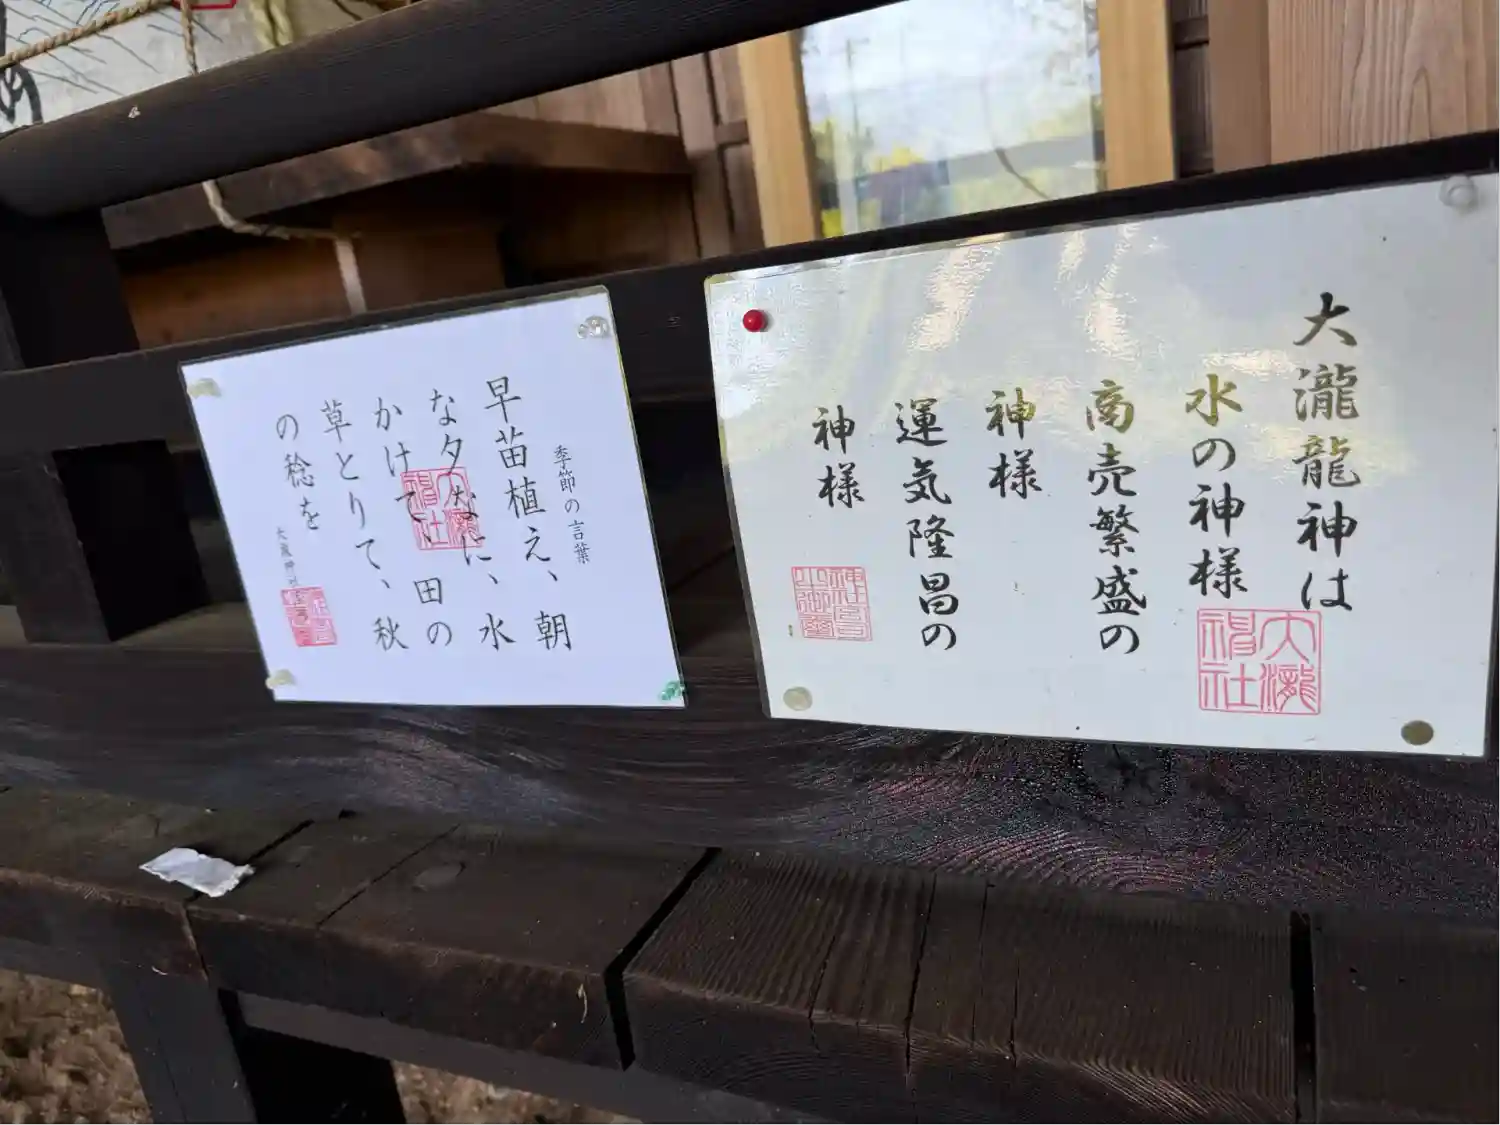 大瀧龍神は
水の神様
商売繁盛の
神様
運気隆昌の
神様
大瀧神社
季節の言葉
早苗植え、朝
な夕なに、水
かけて、田の
草とりて、秋
の稔を
大瀧神社
大瀧神社